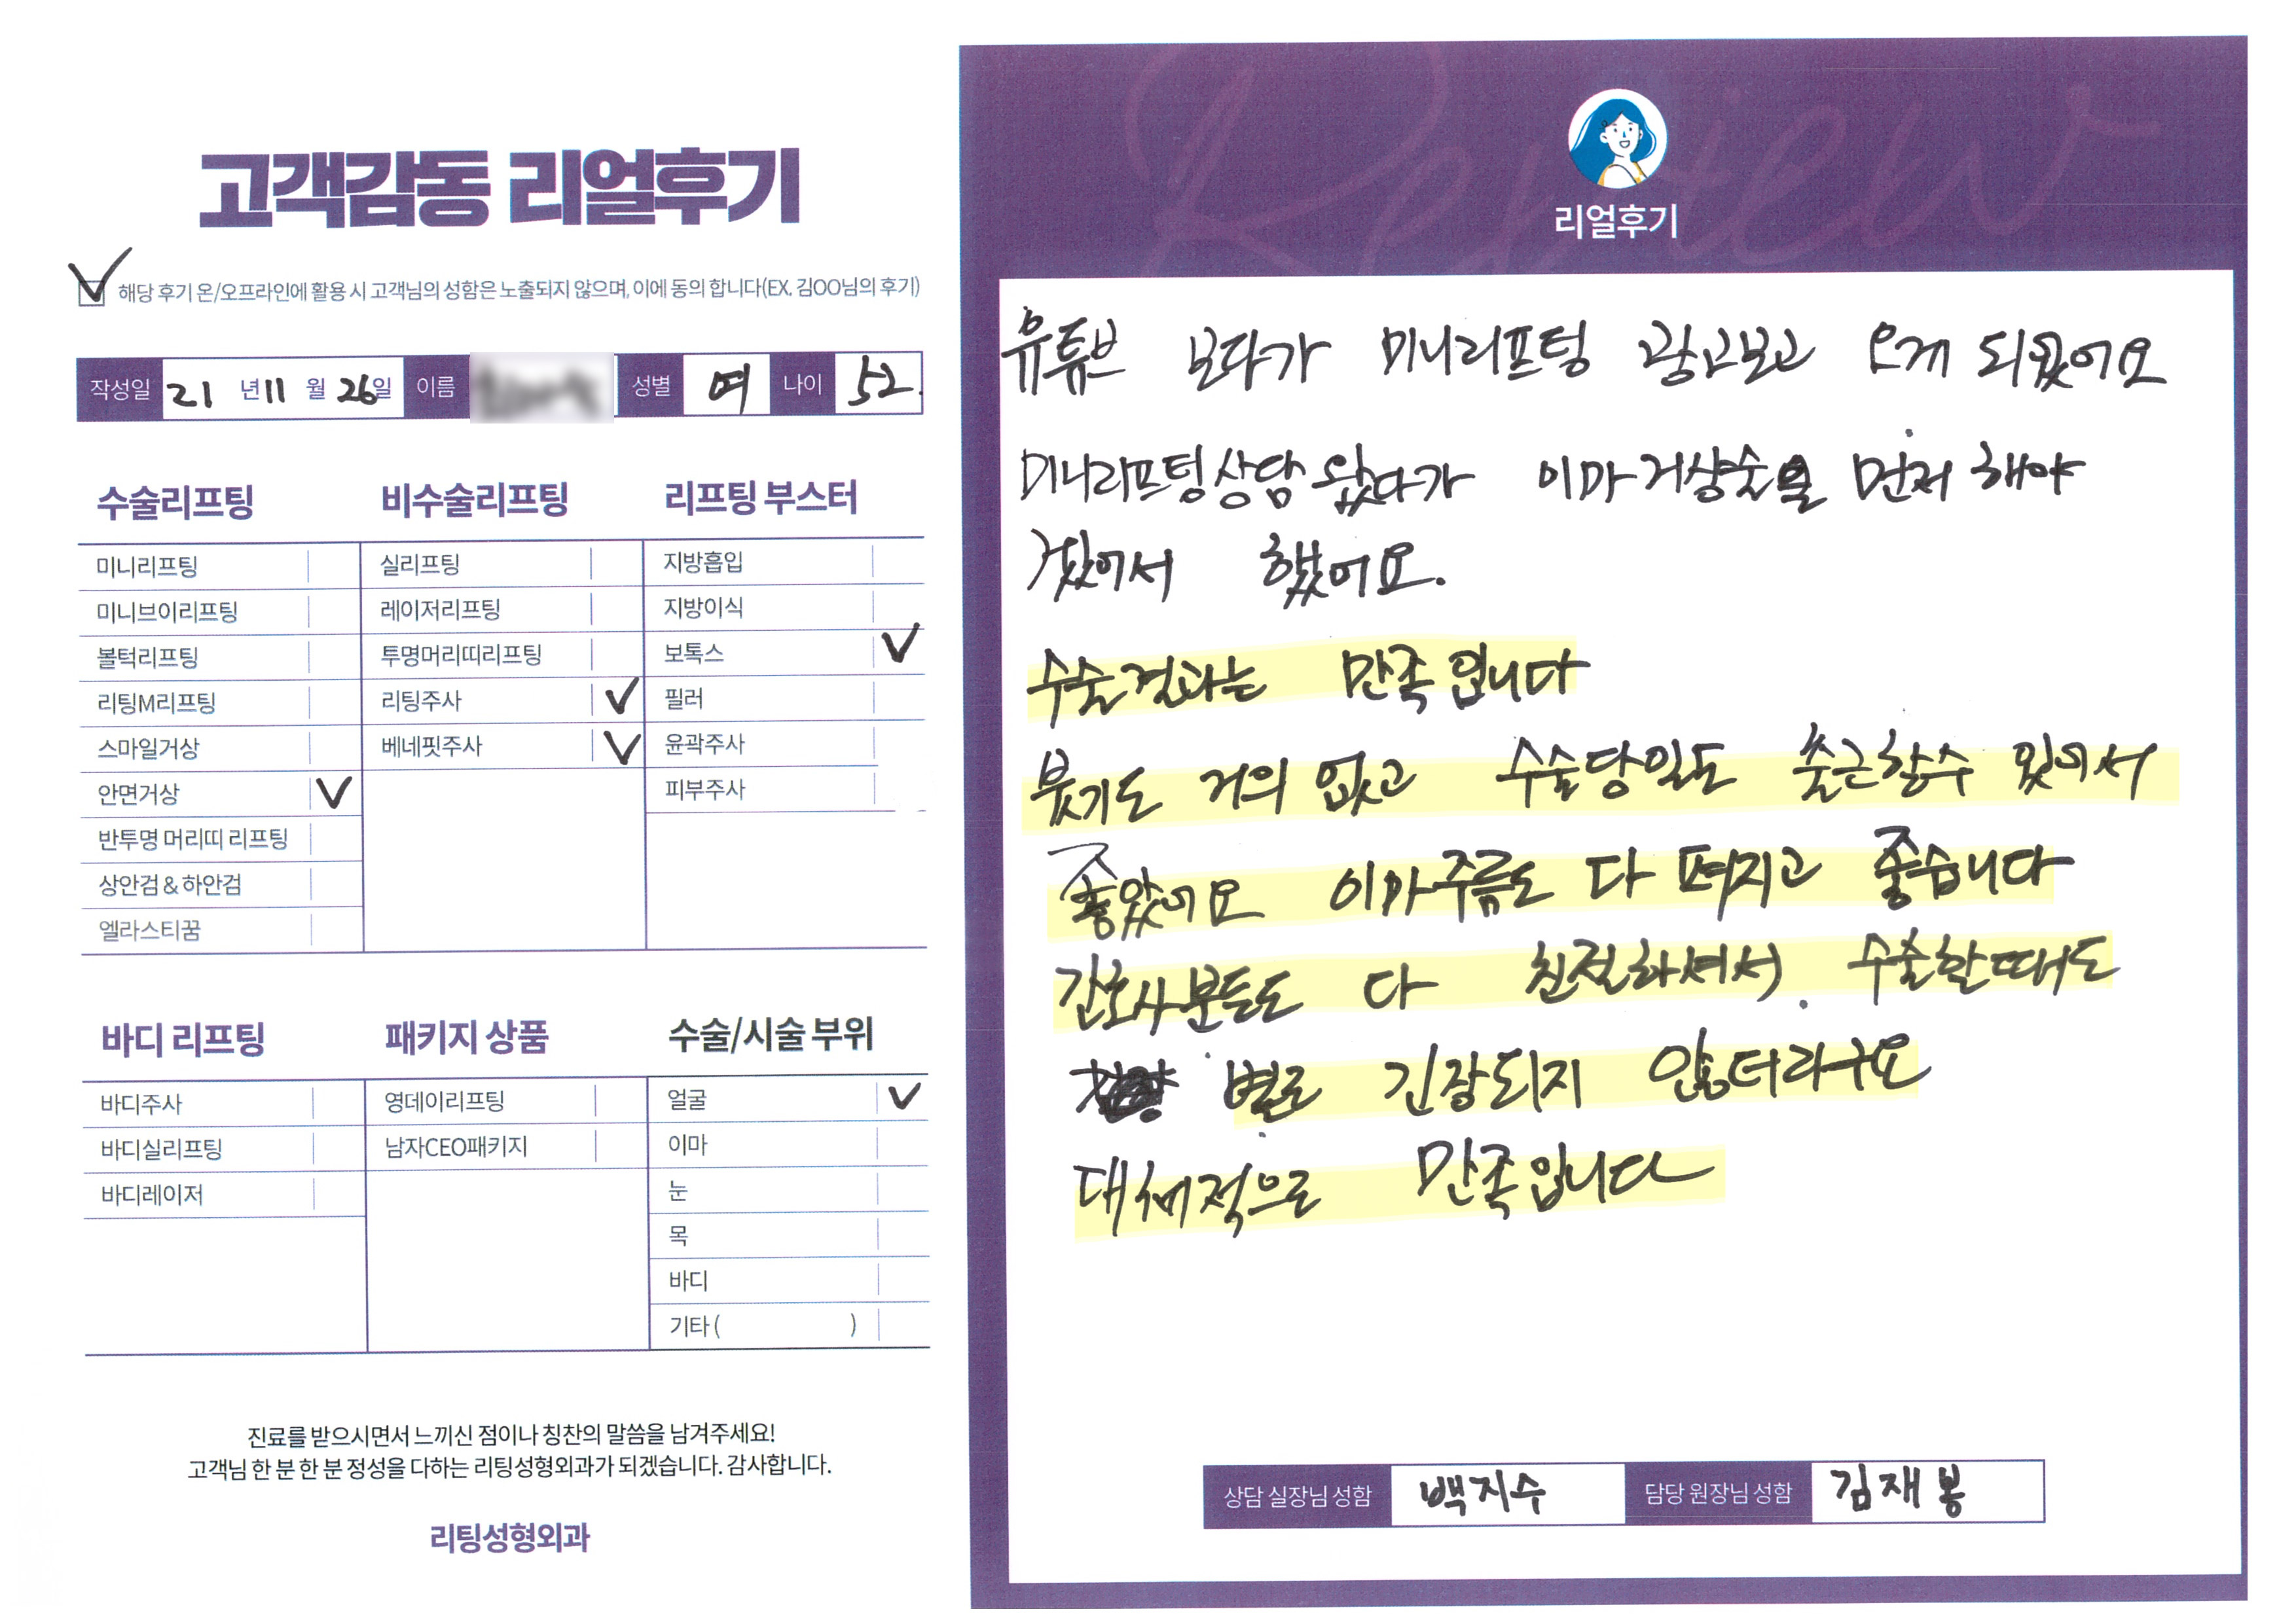 고객감동 리얼후기
해당 후기 온/오프라인에 활용 시 고객님의 성함은 노출되지 않으며, 이에 동의 합니다(EX. 김OO님의 후기)
작성일 21 년 11 월 26일 이름 성별 여 나이 52.
수술리프팅
미니리프팅
미니브이리프팅
볼턱리프팅
리팅M리프팅
스마일거상
안면거상 V
반투명 머리띠 리프팅
상안검 & 하안검
엘라스티꿈
비수술리프팅
실리프팅
레이저리프팅
투명머리띠리프팅
리팅주사 V
베네핏주사 V
리프팅 부스터
지방흡입
지방이식
보톡스 V
필러
윤곽주사
피부주사
바디 리프팅
바디주사
바디실리프팅
바디레이저
패키지 상품
영데이리프팅
남자CEO패키지
수술/시술 부위
얼굴 V
이마
눈
목
바디
기타 ( )
진료를 받으시면서 느끼신 점이나 칭찬의 말씀을 남겨주세요!
고객님 한 분 한 분 정성을 다하는 리팅성형외과가 되겠습니다. 감사합니다.
리팅성형외과
Review
리얼후기
유튜브 보다가 미니리프팅 광고보고 오게 되었어요
미니리프팅상담 왔다가 이마거상술을 먼저 해야
겠어서 했어요.
수술결과는 만족입니다
붓기도 거의 없고 수술당일도 출근할수 있어서
좋았어요 이마주름도 다 펴지고 좋습니다
간호사분들도 다 친절하셔서. 수술할때도
별로 긴장되지 않더라구요
대체적으로 만족입니다
상담 실장님 성함 백지수 담당 원장님 성함 김재봉